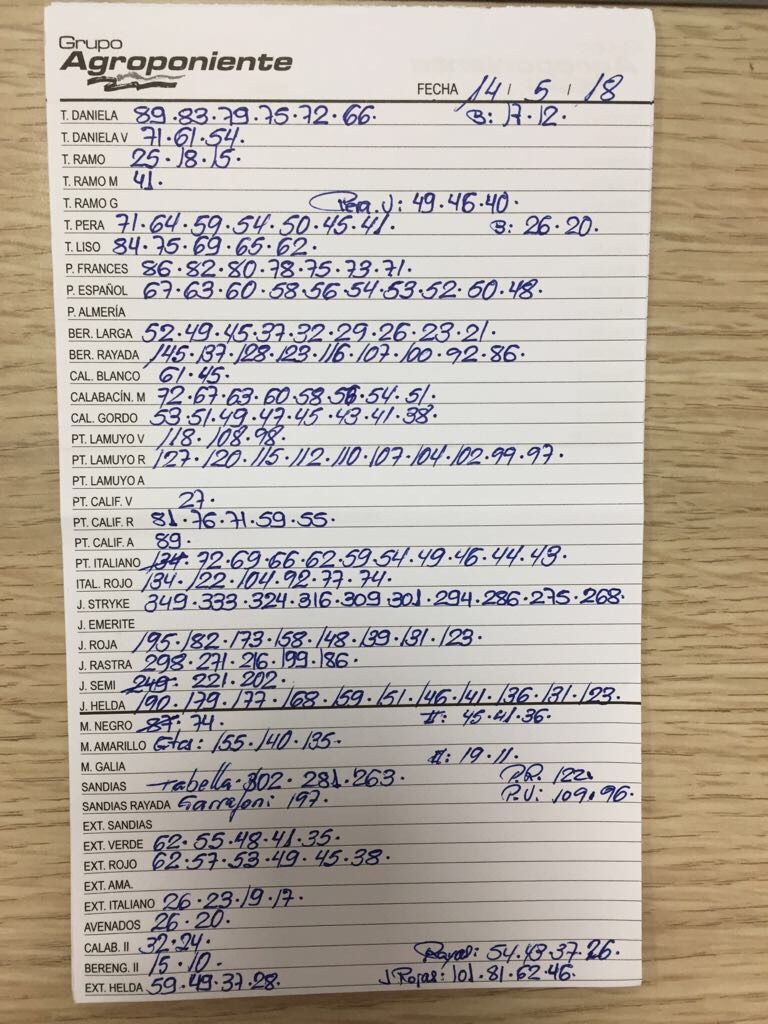 Grupo
Agroponiente
FECHA 14 / 5 / 18
T. DANIELA 89.83.79.75.72.66. B: 17.12.
T. DANIELA V 71.61.54.
T. RAMO 25.18.15.
T. RAMO M 41.
T. RAMO G Pera V: 49.46.40.
T. PERA 71.64.59.54.50.45.41. B: 26.20.
T. LISO 84.75.69.65.62.
P. FRANCES 86.82.80.78.75.73.71.
P. ESPAÑOL 67.63.60.58.56.54.53.52.50.48.
P. ALMERÍA
BER. LARGA 52.49.45.37.32.29.26.23.21.
BER. RAYADA 145.137.128.123.116.107.100.92.86.
CAL. BLANCO 61.45.
CALABACÍN. M 72.67.63.60.58.56.54.51.
CAL. GORDO 53.51.49.47.45.43.41.38.
PT. LAMUYO V 118.108.98.
PT. LAMUYO R 127.120.115.112.110.107.104.102.99.97.
PT. LAMUYO A
PT. CALIF. V 27.
PT. CALIF. R 81.76.71.59.55.
PT. CALIF. A 89.
PT. ITALIANO 134. 72.69.66.62.59.54.49.46.44.43.
ITAL. ROJO 134.122.104.92.77.74.
J. STRYKE 349.333.324.316.309.301.294.286.275.268.
J. EMERITE
J. ROJA 195.182.173.158.148.139.131.123.
J. RASTRA 298.271.216.199.186.
J. SEMI 249. 221.202.
J. HELDA 190.179.177.168.159.151.146.141.136.131.123.
M. NEGRO 87. 74. II: 45.41.36.
M. AMARILLO 155.140.135.
M. GALIA II: 19.11.
SANDIAS fabella. 302.281.263. P.R. 122.
SANDIAS RAYADA 197. P.V: 109.96.
EXT. SANDIAS
EXT. VERDE 62.55.48.41.35.
EXT. ROJO 62.57.53.49.45.38.
EXT. AMA.
EXT. ITALIANO 26.23.19.17.
AVENADOS 26.20.
CALAB. II 32.24.
BERENG. II 15.10. 54.43.37.26.
EXT. HELDA 59.49.37.28. J Rojas: 101.81.62.46.